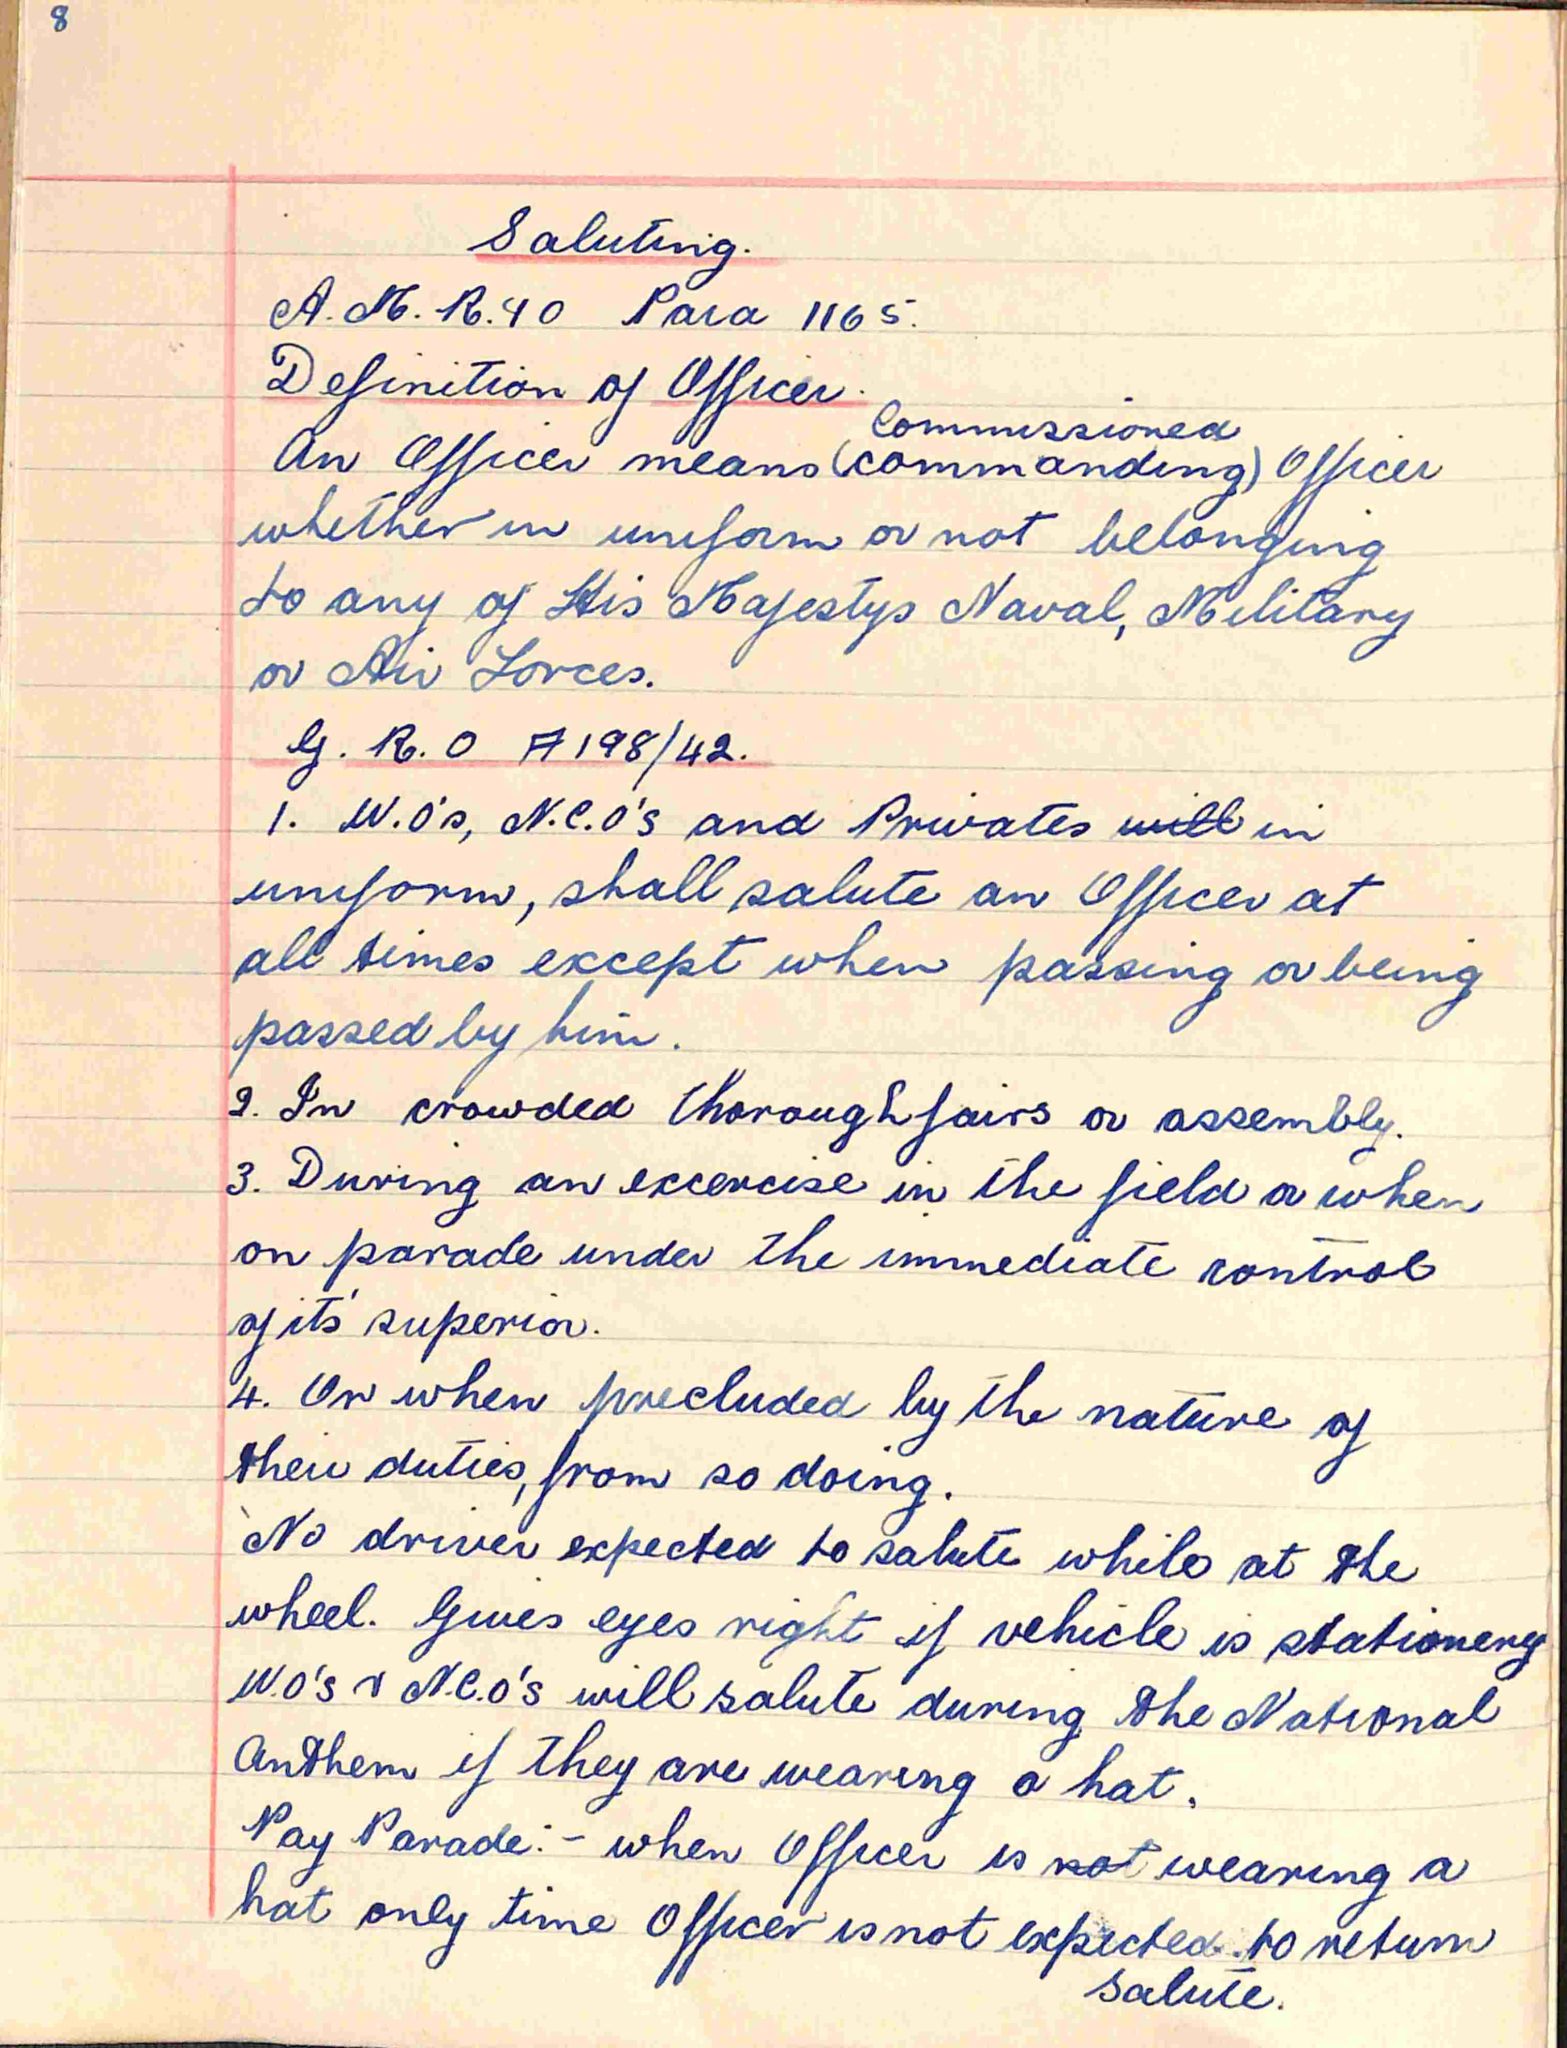 8
Saluting.
A. M. R. 40 Para 1165.
Definition of Officer.
Commissioned
An Officer means (commanding) Officer
whether in uniform or not belonging
to any of His Majestys Naval, Military
or Air Forces.
G. R. O A198/42.
1. W.O's, N.C.O's and Privates will in
uniform, shall salute an Officer at
all times except when passing or being
passed by him.
2. In crowded thoroughfairs or assembly.
3. During an excercise in the field or when
on parade under the immediate control
of its' superior.
4. Or when precluded by the nature of
their duties, from so doing.
No driver expected to salute while at the
wheel. Gives eyes right if vehicle is stationery
W.O's & N.C.O's will salute during the National
Anthem if they are wearing a hat.
Pay Parade:- when Officer is not wearing a
hat only time Officer is not expected to return
salute.